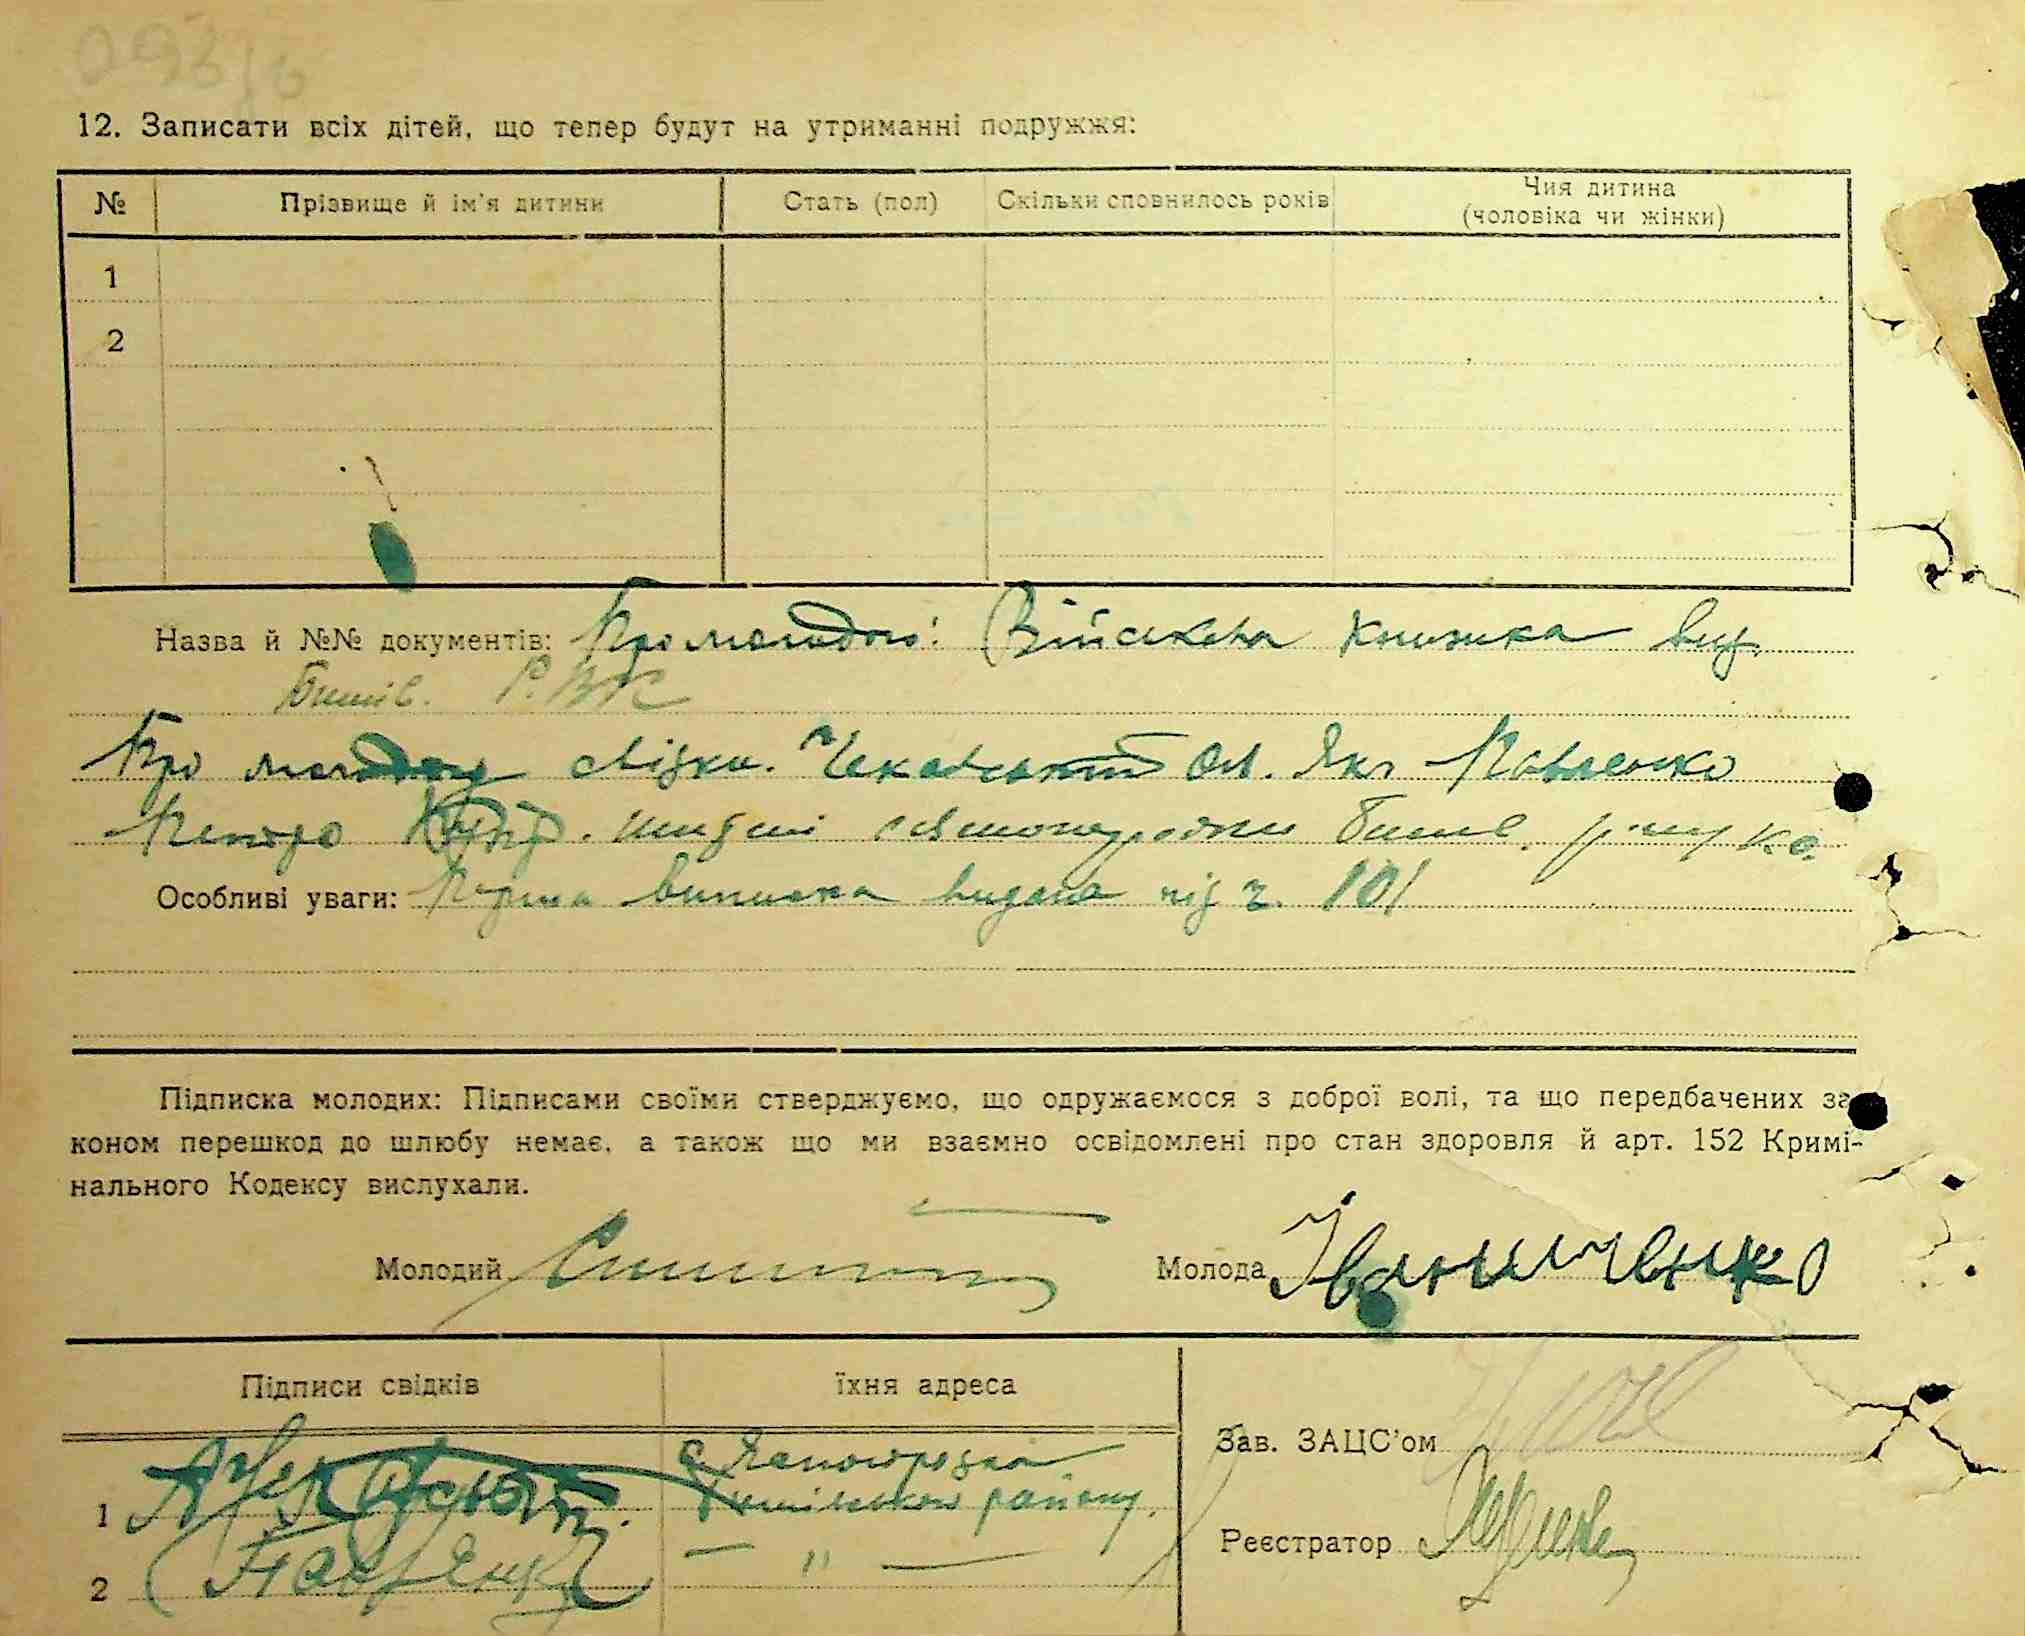 12. Записати всіх дітей, що тепер будут на утриманні подружжя:
№ Прізвище й ім'я дитини Стать (пол) Скільки сповнилось років Чия дитина (чоловіка чи жінки)
1
2
Назва й №№ документів: Про молодого: Військова книжка вид.
Бишів. Р.ВК
Про молоду свідки. Чекавський Ол. Як. Павленко
Петро
Особливі уваги: Перша виписка видана під ч. 101
Підписка молодих: Підписами своїми стверджуємо, що одружаємося з доброї волі, та що передбачених за-
коном перешкод до шлюбу немає, а також що ми взаємно освідомлені про стан здоровля й арт. 152 Кримі-
нального Кодексу вислухали.
Молодий Молода Іваниченко
Підписи свідків їхня адреса
Зав. ЗАЦС'ом
1 с. Ясногородка
Бишівського району.
Реєстратор
2 Павленко — " —